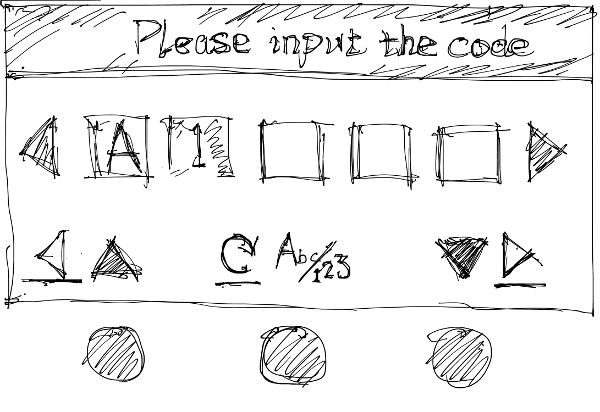 Please input the code
A 1
C Abc/123